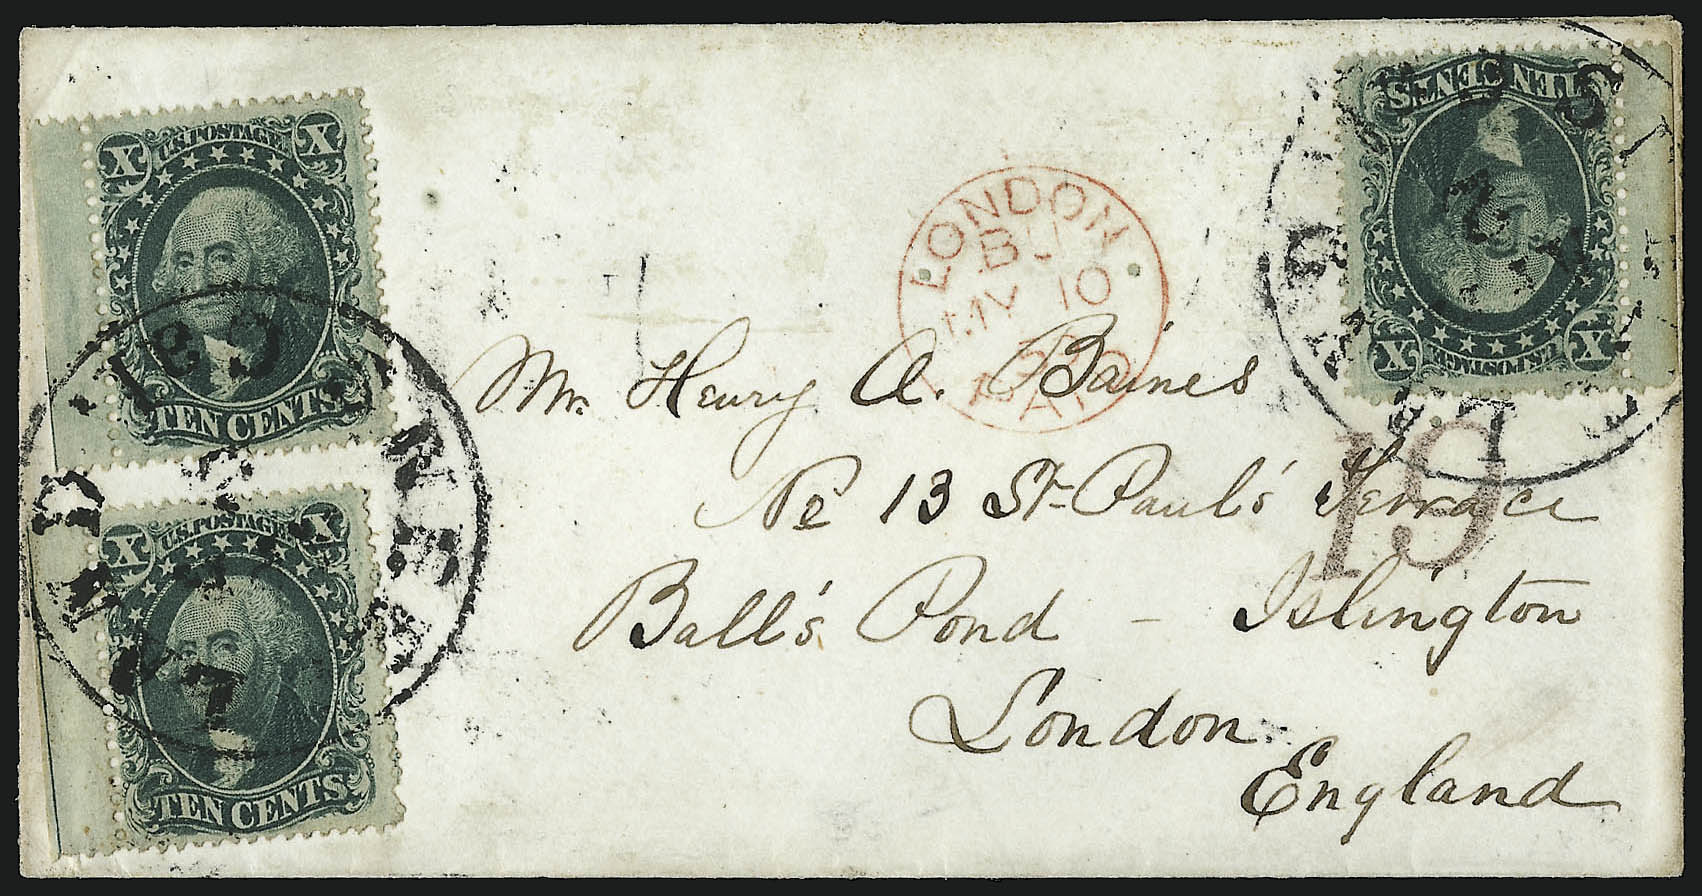 X U.S. POSTAGE X
TEN CENTS
X U.S. POSTAGE X
TEN CENTS
TEN CENTS
X U.S. POSTAGE X
LONDON
MY 10
PAID
19
Mr. Henry A. Baines
No 13 St. Paul's Terrace
Ball's Pond - Islington
London
England